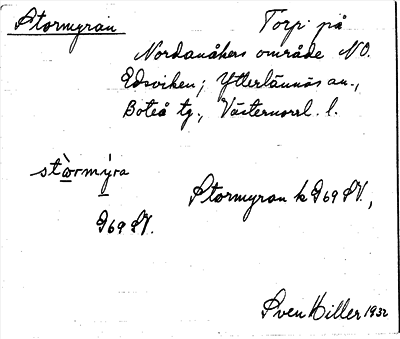 Stormyran Torp på
Nordanåkers område NO.
Edsviken; Ytterlännäs sn.,
Boteå tg., Västernorrl. l.
stòrmýra
Stormyran k G69 SV.,
G69 SV.
Sven Hiller 1932